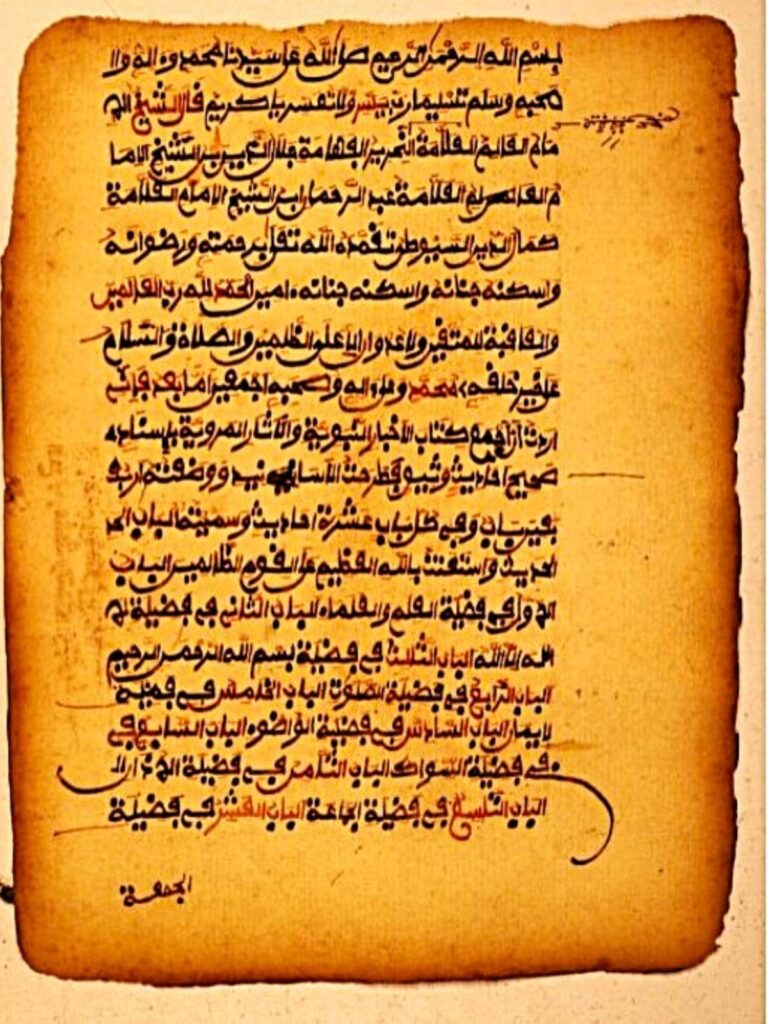 بسم الله الرحمن الرحيم صلى الله على سيدنا محمد وءاله ولا
صحبه وسلم تسليما رب يسر ولا تعسر يا كريم قال الشيخ الا
مام العالم العلامة النحرير الفهامة جلال الدين بن الشيخ الاما
م العلامة عبد الرحمان ابن الشيخ الامام العلامة
كمال الدين السيوطي تغمده الله تعلى برحمته ورضوانه
واسكنه جنانه واسكنه جنانه ءامين الحمد لله رب العلمين
والعاقبة للمتقين ولا عدوان الا على الظلمين والصلاة والسلام
على خير خلقه محمد وعلى ءاله وصحبه اجمعين اما بعد فإني
اردت ان اجمع كتاب الاخبار النبوية والآثار المروية بإسناد
صحيح احاديث وثيق فطرحت الأسانيد ووضعته اربع
بعين باب وفي كل باب عشرة احاديث وسميته الباب الحد
الحديث واستعنت بالله العظيم على القوم الظالمين الباب
الاول في فضيلة العلم والعلماء الباب الثاني في فضيلة لا
اله إلا الله الباب الثالث في فضيلة بسم الله الرحمن الرحيم
الباب الرابع في فضيلة الصلوت الباب الخامس في فضيلة
لايمان الباب السادس في فضيلة الوضوء الباب السابع في
في فضيلة السواك الباب الثامن في فضيلة الاذان
الباب التاسع في فضيلة الجماعة الباب العشر في فضيلة
الجمعة